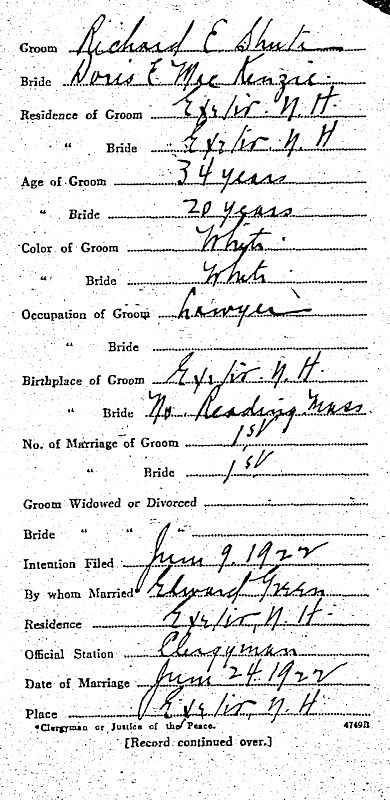 Groom Richard E Shute
Bride Doris E MacKenzie
Residence of Groom Exeter. N. H.
" Bride Exeter. N. H
Age of Groom 34 years
" Bride 20 years
Color of Groom White.
" Bride White
Occupation of Groom Lawyer
" Bride
Birthplace of Groom Exeter. N. H.
" Bride No. Reading Mass
No. of Marriage of Groom 1st
" Bride 1st
Groom Widowed or Divorced
Bride " "
Intention Filed June 9. 1922
By whom Married* Edward Green
Residence Exeter, N. H.
Official Station Clergyman
Date of Marriage June 24. 1922
Place Exeter, N. H
*Clergyman or Justice of the Peace. 4749B
[Record continued over.]